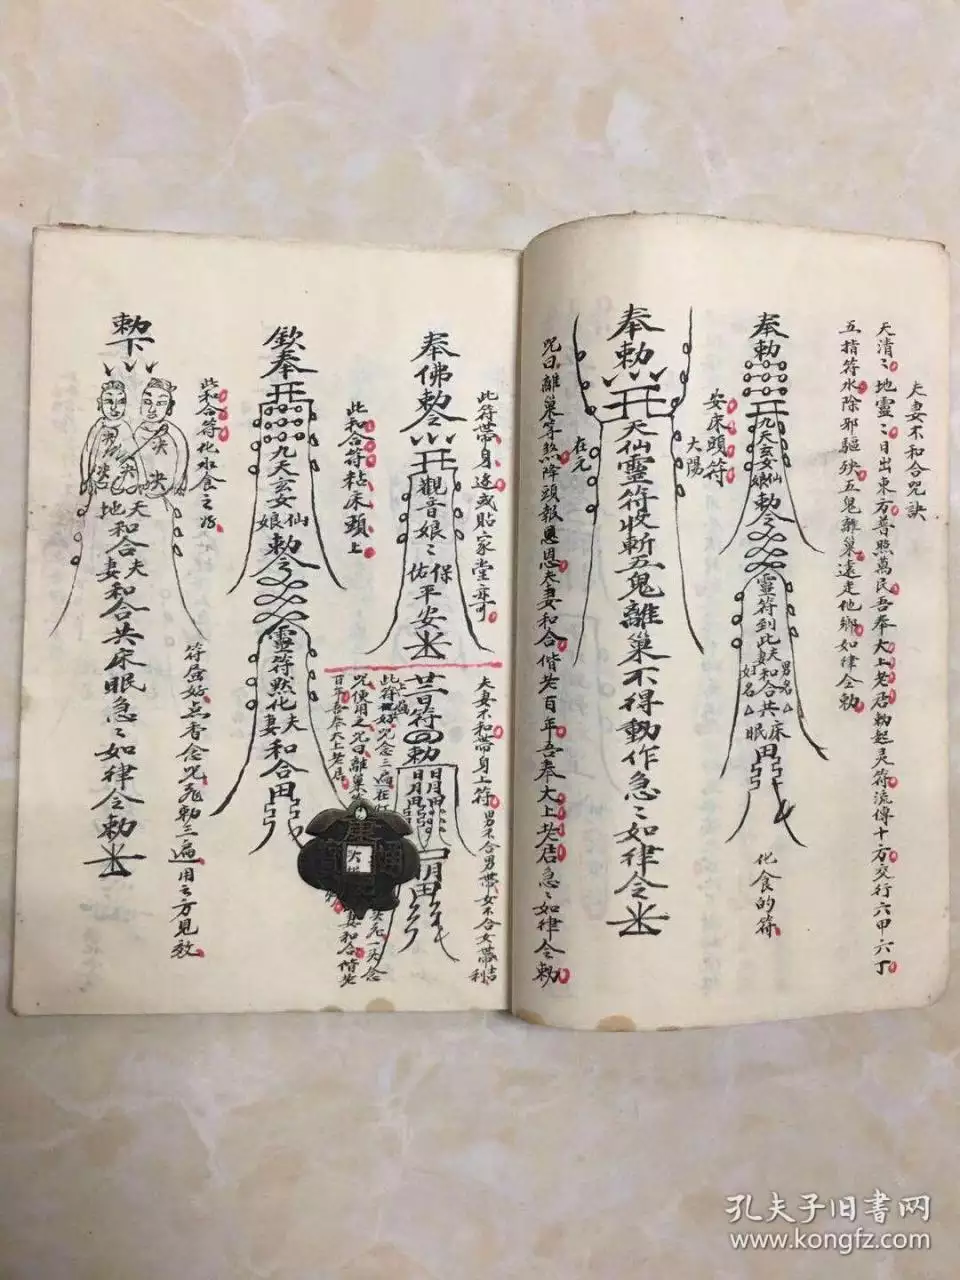 夫妻不和合咒訣
天清〻地靈〻日出東方普照萬民吾奉大上老君勅起灵符流傳十方交行六甲六丁
五指符水除邪驅殃五鬼離巢遠走他鄉如律令勅
奉勅九天玄女仙娘勅令靈符到此夫妻和合共床眠
男名
女名
化食的符
安床頭符
大陽
奉勅天仙靈符收斬五鬼離巢不得動作急〻如律令
在元
咒曰離巢等煞降頭報恩恩夫妻和合偕老百年吾奉大上老君急〻如律令勅
此符帶身返或貼家堂亦可
奉佛勅令觀音娘〻保佑平安
夫妻不和帶身上符男不合男帶女不合女帶吉利
此符好咒念三遍在
咒便用之咒曰離巢
百年吾奉大上老君
妻和合偕老
此和合符粘床頭上
欽奉九天玄女仙娘勅令靈符煞化夫妻和合
此和合符化水食之
符虽好点香念咒勅三遍用之方見效
勅下
決決
天地和合夫妻和合共床眠急〻如律令勅
康
大
孔夫子旧书网
www.kongfz.com